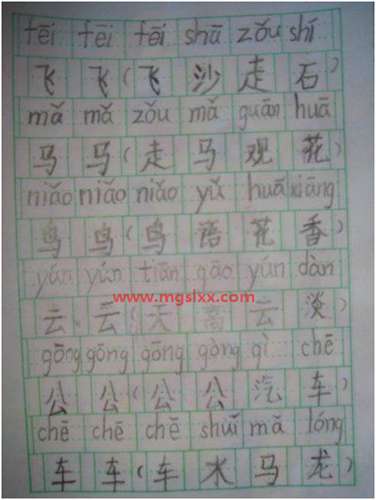 fēi fēi fēi shā zǒu shí
飞飞(飞沙走石)
mǎ mǎ zǒu mǎ guān huā
马马(走马观花)
niǎo niǎo niǎo yǔ huā xiāng
鸟鸟(鸟语花香)
yún yún tiān gāo yún dàn
云云(天高云淡)
www.mgslxx.com
gōng gōng gōng gòng qì chē
公公(公公汽车)
chē chē chē shuǐ mǎ lóng
车车(车水马龙)